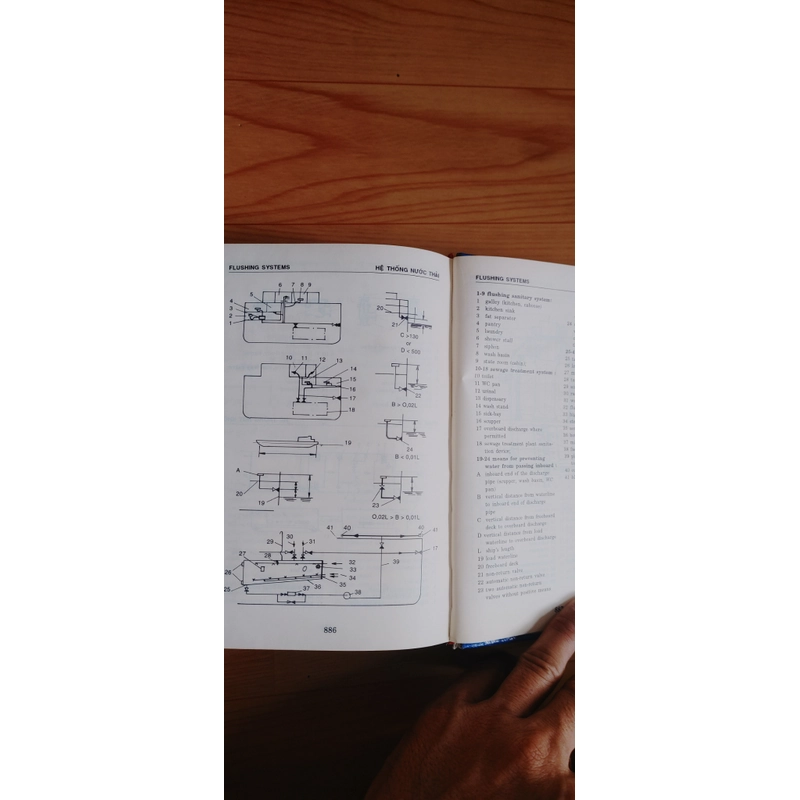 FLUSHING SYSTEMS
HỆ THỐNG NƯỚC THẢI
6 7 8 9
5
4
3
2
1
20
21
C >130
or
D < 500
10 11 12 13
14
15
16
17
18
22
B = 0,02L
19
24
B = 0,01L
A
20
19
23
0,02L > B > 0,01L
30 31
29
28
27
26
25
41 40 40 41
17
32
33
34
35
36
37
38
39
886
FLUSHING SYSTEMS
1-9 flushing sanitary system:
1 galley (kitchen, caboose)
2 kitchen sink
3 fat separator
4 pantry
5 laundry
6 shower stall
7 siphon
8 wash basin
9 state room
10-18 sewage treatment system:
10 toilet
11 WC pan
12 urinal
13 dispensary
14 wash stand
15 sick bay
16 scupper
17 overboard discharge where
permitted
18 sewage treatment plant
tion device
19-24 means for preventing
water from passing inboard:
A inboard end of the discharge
pipe (scupper, wash basin, WC
pan)
B vertical distance from waterline
to inboard end of discharge
pipe
C vertical distance from freeboard
deck to overboard discharge
D vertical distance from load
waterline to overboard discharge
L ship's length
19 load waterline
20 freeboard deck
21 non-return valve
22 automatic non-return valve
23 two automatic non-return
valves without positive means